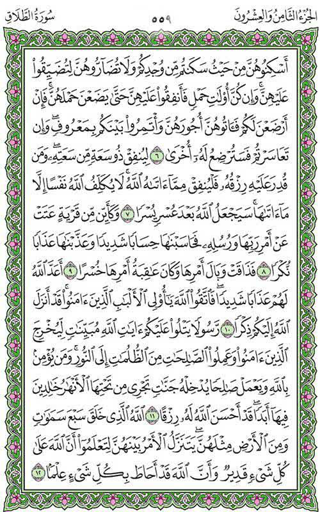 سُورَةُ الطَّلَاقِ ٥٥٩ الجُزْءُ الثَّامِنُ وَالعِشْرُونَ
أَسْكِنُوهُنَّ مِنْ حَيْثُ سَكَنتُم مِّن وُجْدِكُمْ وَلَا تُضَآرُّوهُنَّ لِتُضَيِّقُوا۟
عَلَيْهِنَّ ۚ وَإِن كُنَّ أُو۟لَٰتِ حَمْلٍ فَأَنفِقُوا۟ عَلَيْهِنَّ حَتَّىٰ يَضَعْنَ حَمْلَهُنَّ ۚ فَإِنْ
أَرْضَعْنَ لَكُمْ فَـَٔاتُوهُنَّ أُجُورَهُنَّ ۖ وَأْتَمِرُوا۟ بَيْنَكُم بِمَعْرُوفٍ ۖ وَإِن
تَعَاسَرْتُمْ فَسَتُرْضِعُ لَهُۥٓ أُخْرَىٰ ٦ لِيُنفِقْ ذُو سَعَةٍ مِّن سَعَتِهِۦ ۖ وَمَن
قُدِرَ عَلَيْهِ رِزْقُهُۥ فَلْيُنفِقْ مِمَّآ ءَاتَىٰهُ ٱللَّهُ ۚ لَا يُكَلِّفُ ٱللَّهُ نَفْسًا إِلَّا
مَآ ءَاتَىٰهَا ۚ سَيَجْعَلُ ٱللَّهُ بَعْدَ عُسْرٍ يُسْرًا ٧ وَكَأَيِّن مِّن قَرْيَةٍ عَتَتْ
عَنْ أَمْرِ رَبِّهَا وَرُسُلِهِۦ فَحَاسَبْنَٰهَا حِسَابًا شَدِيدًا وَعَذَّبْنَٰهَا عَذَابًا
نُّكْرًا ٨ فَذَاقَتْ وَبَالَ أَمْرِهَا وَكَانَ عَٰقِبَةُ أَمْرِهَا خُسْرًا ٩ أَعَدَّ ٱللَّهُ
لَهُمْ عَذَابًا شَدِيدًا ۖ فَٱتَّقُوا۟ ٱللَّهَ يَٰٓأُو۟لِى ٱلْأَلْبَٰبِ ٱلَّذِينَ ءَامَنُوا۟ ۚ قَدْ أَنزَلَ
ٱللَّهُ إِلَيْكُمْ ذِكْرًا ١٠ رَّسُولًا يَتْلُوا۟ عَلَيْكُمْ ءَايَٰتِ ٱللَّهِ مُبَيِّنَٰتٍ لِّيُخْرِجَ
ٱلَّذِينَ ءَامَنُوا۟ وَعَمِلُوا۟ ٱلصَّٰلِحَٰتِ مِنَ ٱلظُّلُمَٰتِ إِلَى ٱلنُّورِ ۚ وَمَن يُؤْمِنۢ
بِٱللَّهِ وَيَعْمَلْ صَٰلِحًا يُدْخِلْهُ جَنَّٰتٍ تَجْرِى مِن تَحْتِهَا ٱلْأَنْهَٰرُ خَٰلِدِينَ
فِيهَآ أَبَدًا ۖ قَدْ أَحْسَنَ ٱللَّهُ لَهُۥ رِزْقًا ١١ ٱللَّهُ ٱلَّذِى خَلَقَ سَبْعَ سَمَٰوَٰتٍ
وَمِنَ ٱلْأَرْضِ مِثْلَهُنَّ يَتَنَزَّلُ ٱلْأَمْرُ بَيْنَهُنَّ لِتَعْلَمُوٓا۟ أَنَّ ٱللَّهَ عَلَىٰ
كُلِّ شَىْءٍ قَدِيرٌ وَأَنَّ ٱللَّهَ قَدْ أَحَاطَ بِكُلِّ شَىْءٍ عِلْمًۢا ١٢